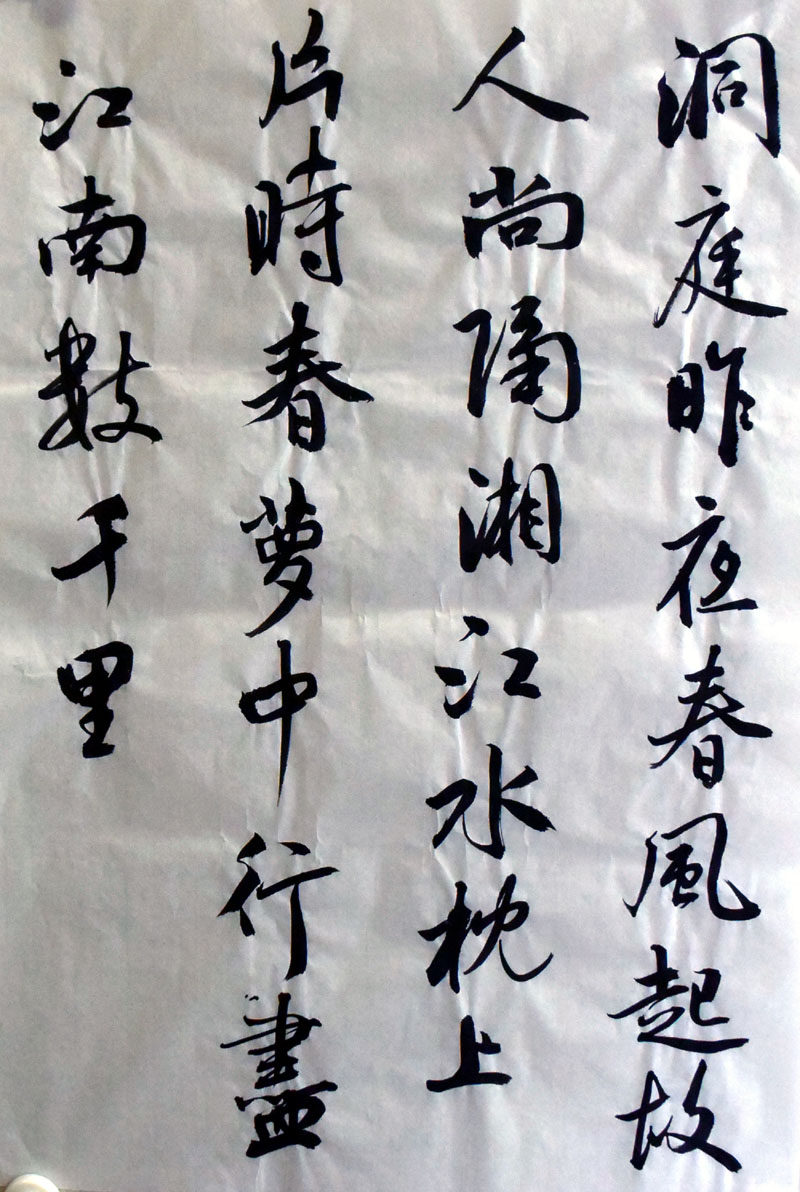 洞庭昨夜春風起故
人尚隔湘江水枕上
片時春夢中行盡
江南數千里